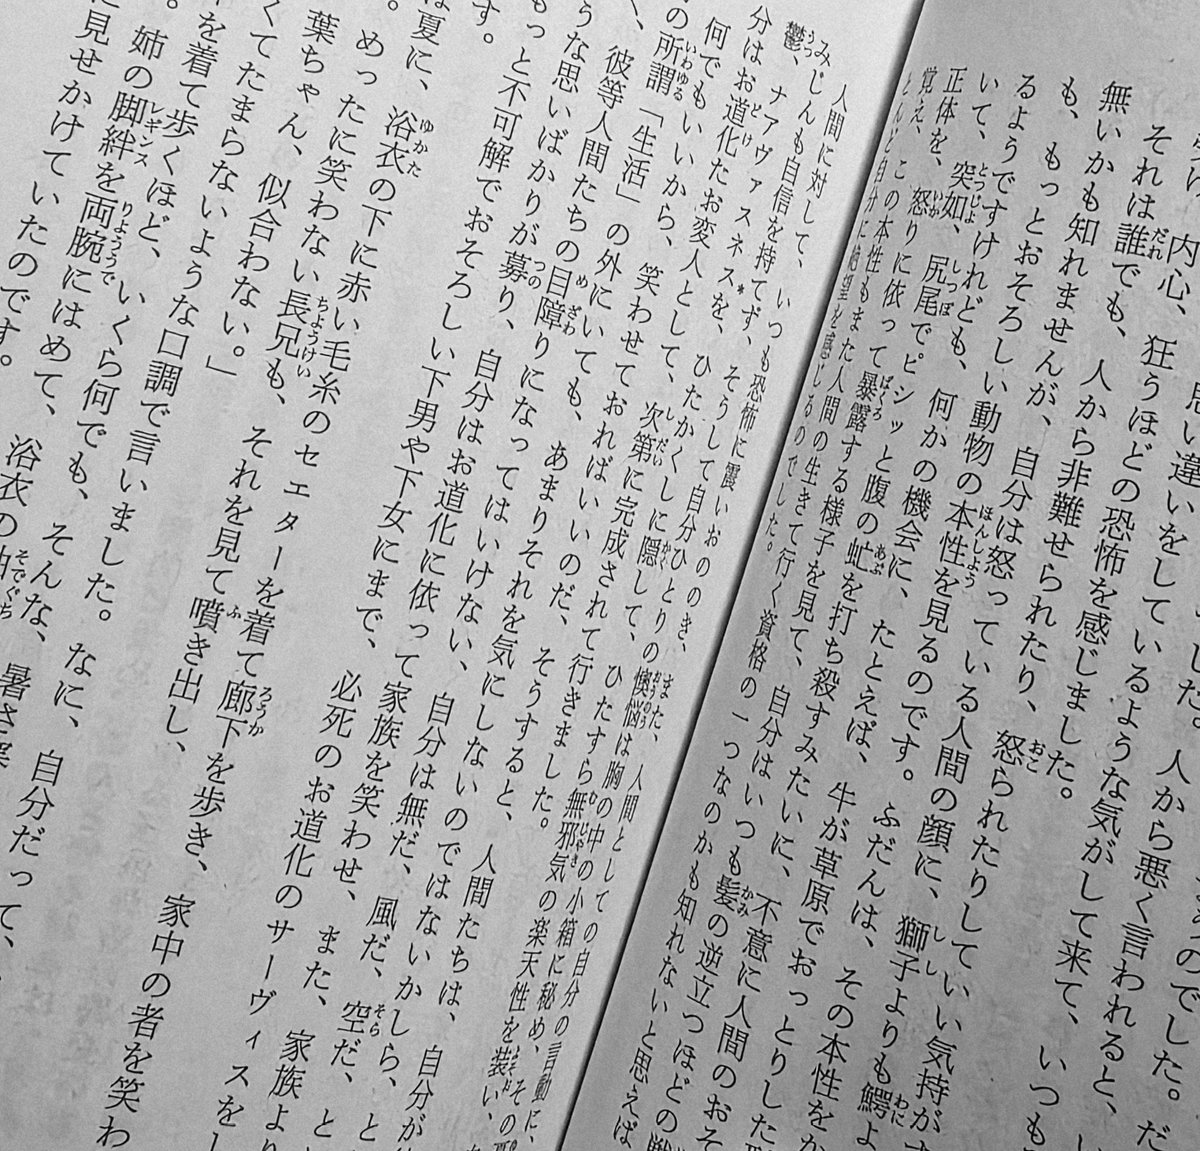 のでした。だ
した。人から悪く言われると、い
思い違いをしているような気がして来て、いつも
内心、狂うほどの恐怖を感じました。
それは誰でも、人から非難せられたり、怒られたりしていい気持がす
無いかも知れませんが、自分は怒っている人間の顔に、獅子よりも鰐よ
も、もっとおそろしい動物の本性を見るのです。ふだんは、その本性をか
るようですけれども、何かの機会に、たとえば、牛が草原でおっとりした形
いて、突如、尻尾でピシッと腹の虻を打ち殺すみたいに、不意に人間のおそ
正体を、怒りに依って暴露する様子を見て、自分はいつも髪の逆立つほどの戦
覚え、この本性もまた人間の生きて行く資格の一つなのかも知れないと思えば
とんど自分に絶望を感じるのでした。
人間に対して、いつも恐怖に震いおののき、また、人間としての自分の言動に、
みじんも自信を持てず、そうして自分ひとりの懊悩は胸の中の小箱に秘め、その
鬱、ナアヴァスネス*を、ひたかくしに隠して、ひたすら無邪気の楽天性を装い、
分はお道化たお変人として、次第に完成されて行きました。
何でもいいから、笑わせておればいいのだ、そうすると、人間たちは、自分が
の所謂「生活」の外にいても、あまりそれを気にしないのではないかしら、と
く、彼等人間たちの目障りになってはいけない、自分は無だ、風だ、空だ、と
うな思いばかりが募り、自分はお道化に依って家族を笑わせ、また、家族より
もっと不可解でおそろしい下男や下女にまで、必死のお道化のサーヴィスをし
す。
は夏に、浴衣の下に赤い毛糸のセエターを着て廊下を歩き、家中の者を笑わ
。めったに笑わない長兄も、それを見て噴き出し、
葉ちゃん、似合わない。」
くてたまらないような口調で言いました。なに、自分だって、
を着て歩くほど、いくら何でも、そんな、暑さ
。姉の脚絆を両腕にはめて、浴衣の
に見せかけていたのです。